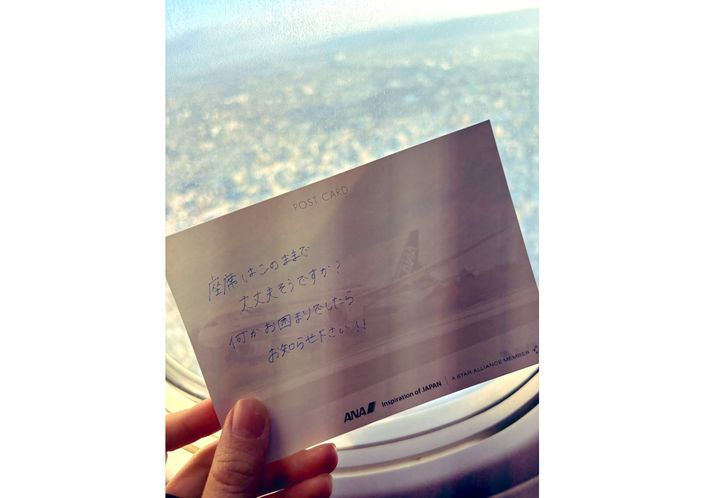 POST CARD
座席はこのままで
大丈夫そうですか?
何かお困りでしたら
お知らせ下さい!!
ANA Inspiration of JAPAN | A STAR ALLIANCE MEMBER
ANA